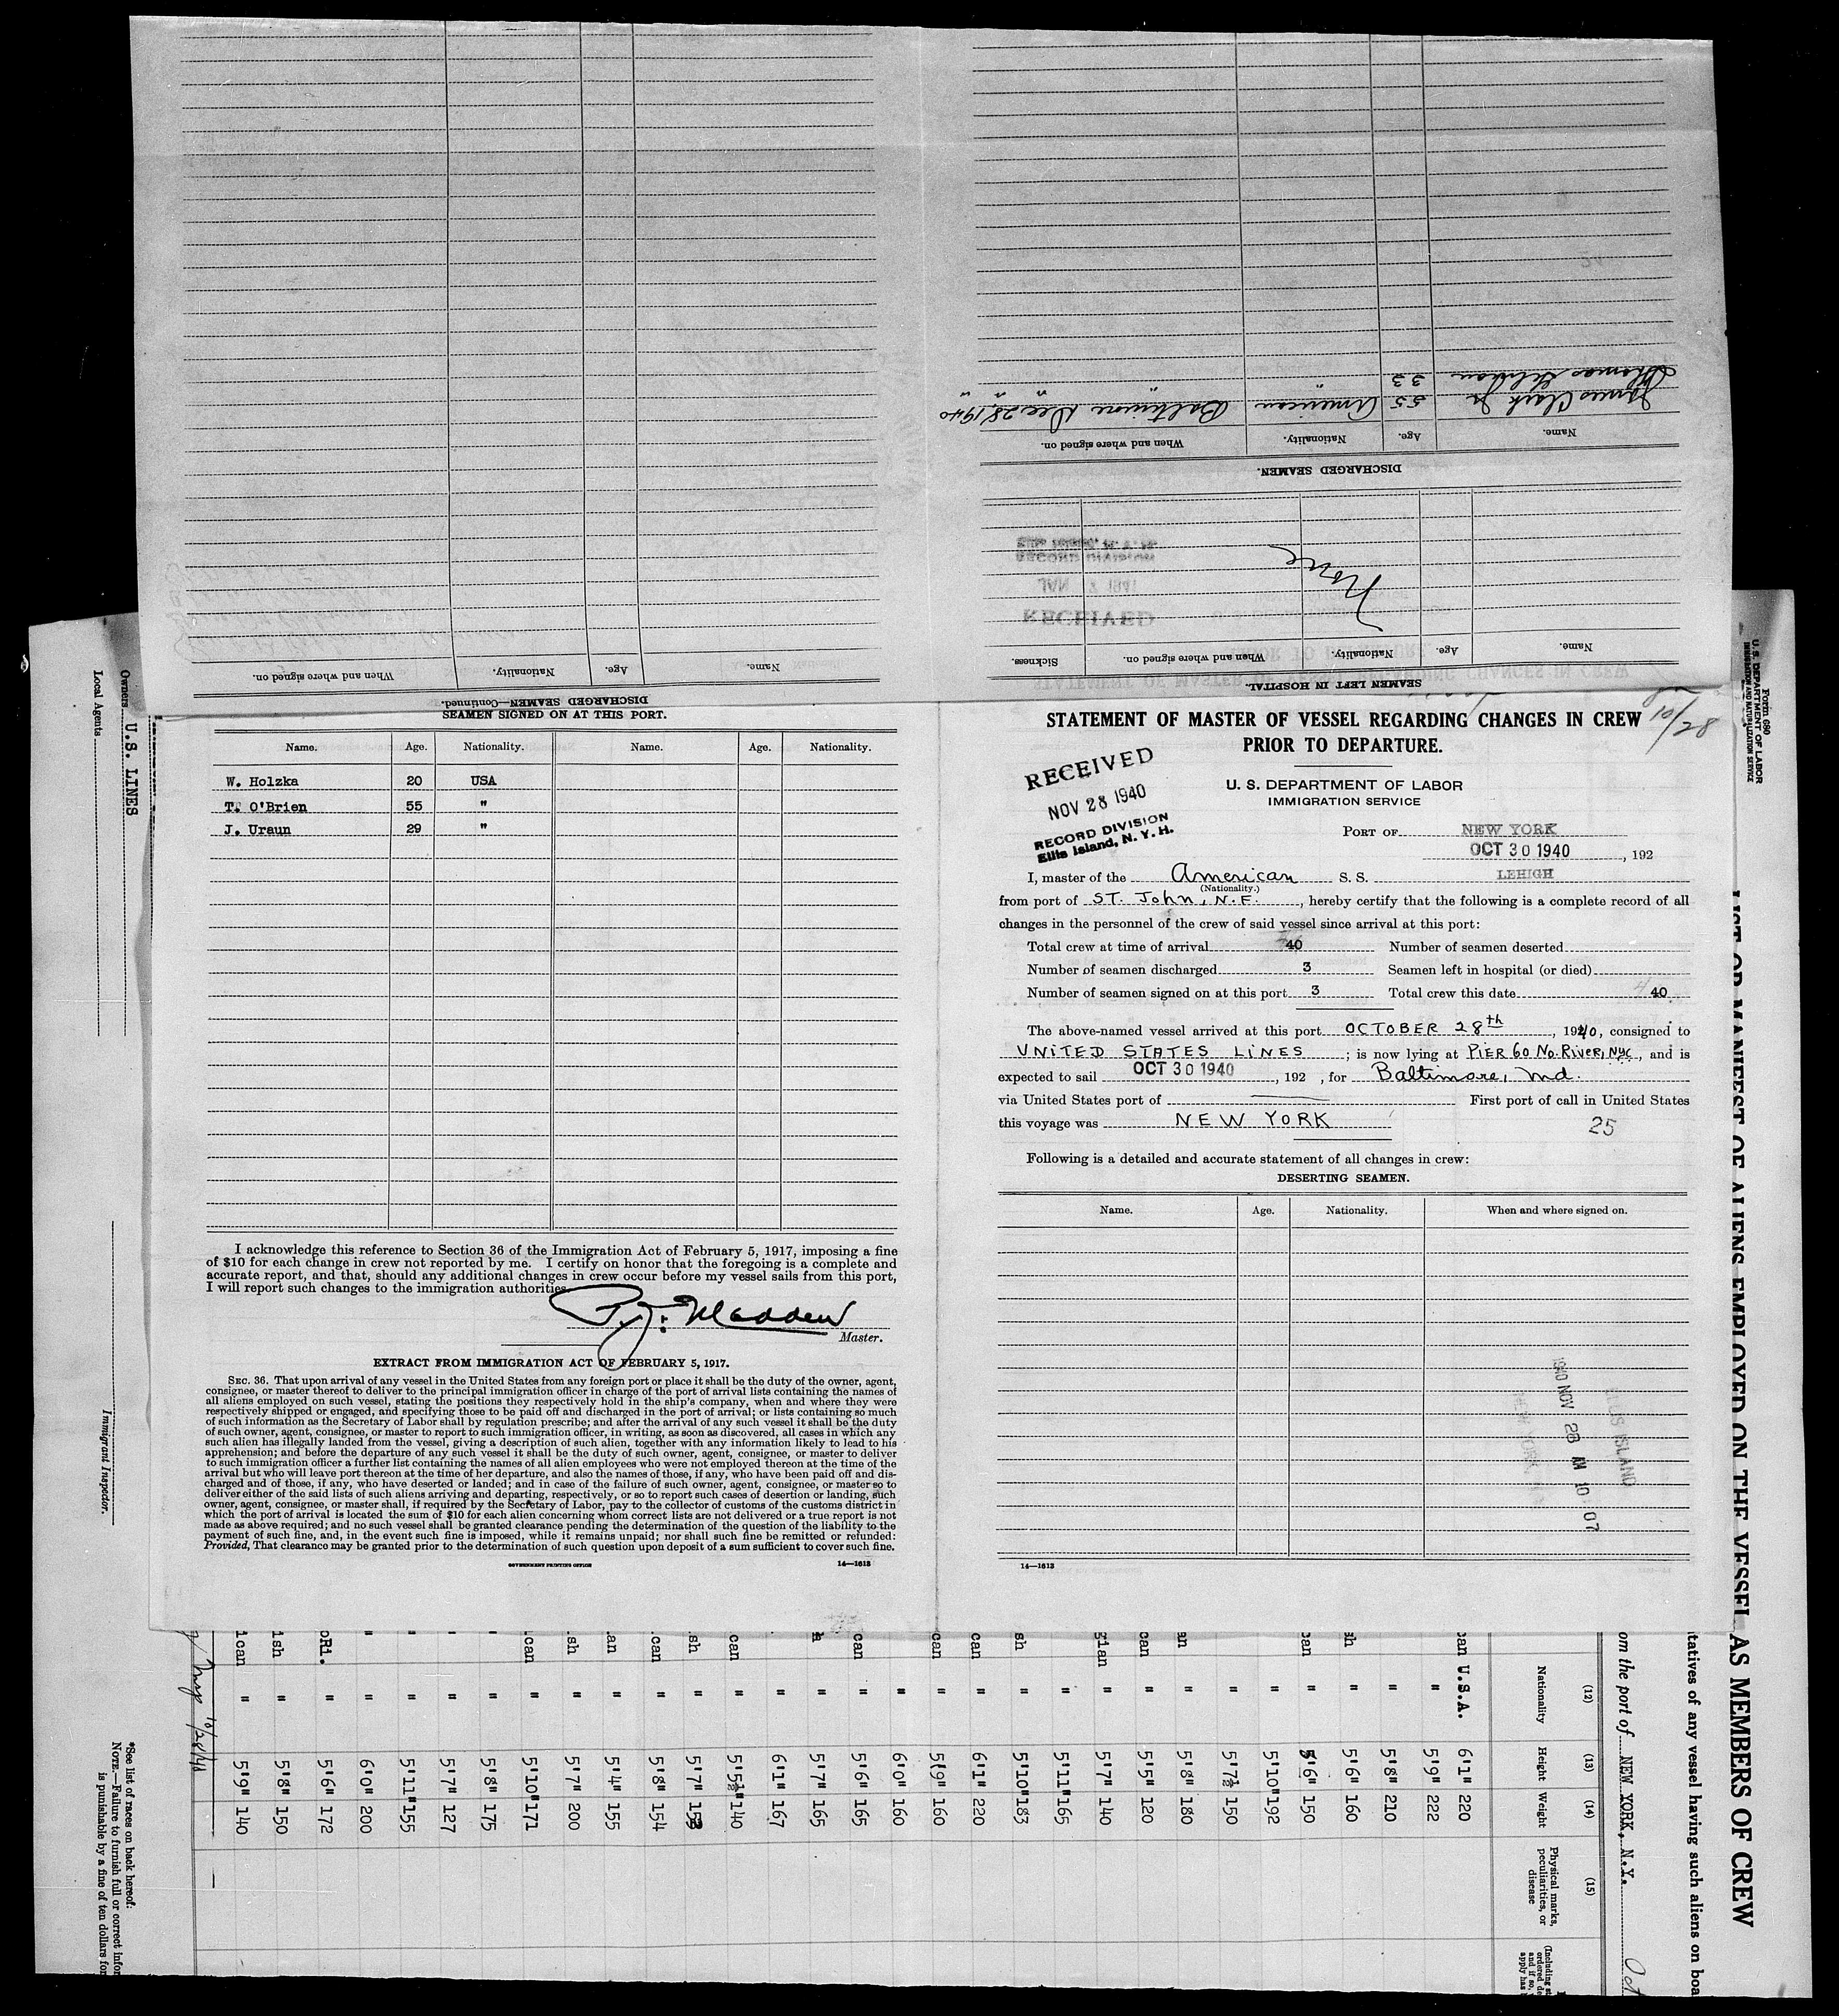 Name.
Age.
Nationality.
When and where signed on.
DISCHARGED SEAMEN—Continued.
SEAMEN LEFT IN HOSPITAL.
Name.
Age.
Nationality.
When and where signed on.
Sickness.
None
RECEIVED
RECORD DIVISION
DISCHARGED SEAMEN.
Name.
Age.
Nationality.
When and where signed on.
James Clark Jr 55 American Baltimore Dec 28, 1940
Thomas 33 " " " "
SEAMEN SIGNED ON AT THIS PORT.
Name. Age. Nationality. Name. Age. Nationality.
W. Holzka 20 USA
T. O'Brien 55 "
J. Uraun 29 "
I acknowledge this reference to Section 36 of the Immigration Act of February 5, 1917, imposing a fine
of $10 for each change in crew not reported by me. I certify on honor that the foregoing is a complete and
accurate report, and that, should any additional changes in crew occur before my vessel sails from this port,
I will report such changes to the immigration authorities
P. J. Madden
Master.
EXTRACT FROM IMMIGRATION ACT OF FEBRUARY 5, 1917.
SEC. 36. That upon arrival of any vessel in the United States from any foreign port or place it shall be the duty of the owner, agent,
consignee, or master thereof to deliver to the principal immigration officer in charge of the port of arrival lists containing the names of
all aliens employed on such vessel, stating the positions they respectively hold in the ship's company, when and where they were
respectively shipped or engaged, and specifying those to be paid off and discharged in the port of arrival; or lists containing so much
of such information as the Secretary of Labor shall by regulation prescribe; and after the arrival of any such vessel it shall be the duty
of such owner, agent, consignee, or master to report to such immigration officer, in writing, as soon as discovered, all cases in which any
such alien has illegally landed from the vessel, giving a description of such alien, together with any information likely to lead to his
apprehension; and before the departure of any such vessel it shall be the duty of such owner, agent, consignee, or master to deliver
to such immigration officer a further list containing the names of all alien employees who were not employed thereon at the time of the
arrival but who will leave port thereon at the time of her departure, and also the names of those, if any, who have been paid off and dis-
charged and of those, if any, who have deserted or landed; and in case of the failure of such owner, agent, consignee, or master so to
deliver either of the said lists of such aliens arriving and departing, respectively, or so to report such cases of desertion or landing, such
owner, agent, consignee, or master shall, if required by the Secretary of Labor, pay to the collector of customs of the customs district in
which the port of arrival is located the sum of $10 for each alien concerning whom correct lists are not delivered or a true report is not
made as above required; and no such vessel shall be granted clearance pending the determination of the question of the liability to the
payment of such fine, and, in the event such fine is imposed, while it remains unpaid; nor shall such fine be remitted or refunded:
Provided, That clearance may be granted prior to the determination of such question upon deposit of a sum sufficient to cover such fine.
GOVERNMENT PRINTING OFFICE 14—1613
10/28
STATEMENT OF MASTER OF VESSEL REGARDING CHANGES IN CREW
PRIOR TO DEPARTURE.
RECEIVED
NOV 28 1940
RECORD DIVISION
Ellis Island, N. Y. H.
U. S. DEPARTMENT OF LABOR
IMMIGRATION SERVICE
PORT OF NEW YORK
OCT 30 1940, 192
I, master of the American S. S. LEHIGH
(Nationality.)
from port of ST. John, N.F., hereby certify that the following is a complete record of all
changes in the personnel of the crew of said vessel since arrival at this port:
Total crew at time of arrival 40 Number of seamen deserted
Number of seamen discharged 3 Seamen left in hospital (or died)
Number of seamen signed on at this port 3 Total crew this date 40
The above-named vessel arrived at this port OCTOBER 28th, 1940, consigned to
UNITED STATES LINES; is now lying at PIER 60 No. River, NYC, and is
expected to sail OCT 30 1940, 192 , for Baltimore, Md.
via United States port of First port of call in United States
this voyage was NEW YORK
25
Following is a detailed and accurate statement of all changes in crew:
DESERTING SEAMEN.
Name. Age. Nationality. When and where signed on.
ELLIS ISLAND
1940 NOV 28 AM 10 07
NEW YORK
14—1613
Form 680
U. S. DEPARTMENT OF LABOR
IMMIGRATION AND NATURALIZATION SERVICE
LIST OR MANIFEST OF ALIENS EMPLOYED ON THE VESSEL AS MEMBERS OF CREW
tatives of any vessel having such aliens on boa
om the port of NEW YORK, N.Y. Oct
(12) (13) (14) (15)
Nationality Height Weight Physical marks, peculiarities, or disease
can U.S.A. 6'1" 220
" 5'9" 222
" 5'8" 210
sh " 5'6" 160
can " 5'6" 150
" 5'10" 192
" 5'7½ 150
an " 5'8" 180
can " 5'5" 120
gian " 5'7" 140
" 5'11" 165
sh " 5'10" 183
can " 6'1" 220
can " 5'9" 160
" 6'0" 160
can " 5'6" 165
" 5'7" 165
" 6'1" 167
can " 5'5½" 140
sh " 5'7" 153
can " 5'8" 154
an " 5'4" 155
sh " 5'7" 200
can " 5'10" 171
" 5'8" 175
" 5'7" 127
" 5'11" 155
" " 6'0" 200
oRi. " 5'6" 172
ish " 5'8" 150
ican " 5'9" 140
10/28/40
Owners U.S. LINES
Local Agents
Immigrant Inspector.
*See list of races on back hereof.
NOTE.—Failure to furnish full or correct infor
is punishable by a fine of ten dollars for